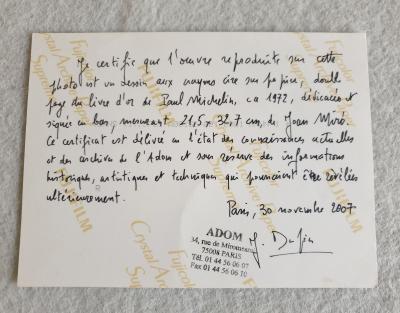 Je certifie que l'œuvre reproduite sur cette
photo est un dessin aux crayons cire sur papier, double
page du livre d'or de Paul Michelin, ca 1972, dédicacée et
signée en bas, mesurant 21,5 x 32,7 cm, de Joan Miró.
Ce certificat est délivré en l'état des connaissances actuelles
et des archives de l'Adom et sous réserve des informations
historiques, artistiques et techniques qui pourraient être révélées
ultérieurement.
Paris, 30 novembre 2007
ADOM
34, rue de Miromesnil
75008 PARIS
Tél. 01 44 56 06 07
Fax 01 44 56 06 10
Fujicolor
Crystal Archive
FUJIFILM
Fujicolor
Crystal Archive